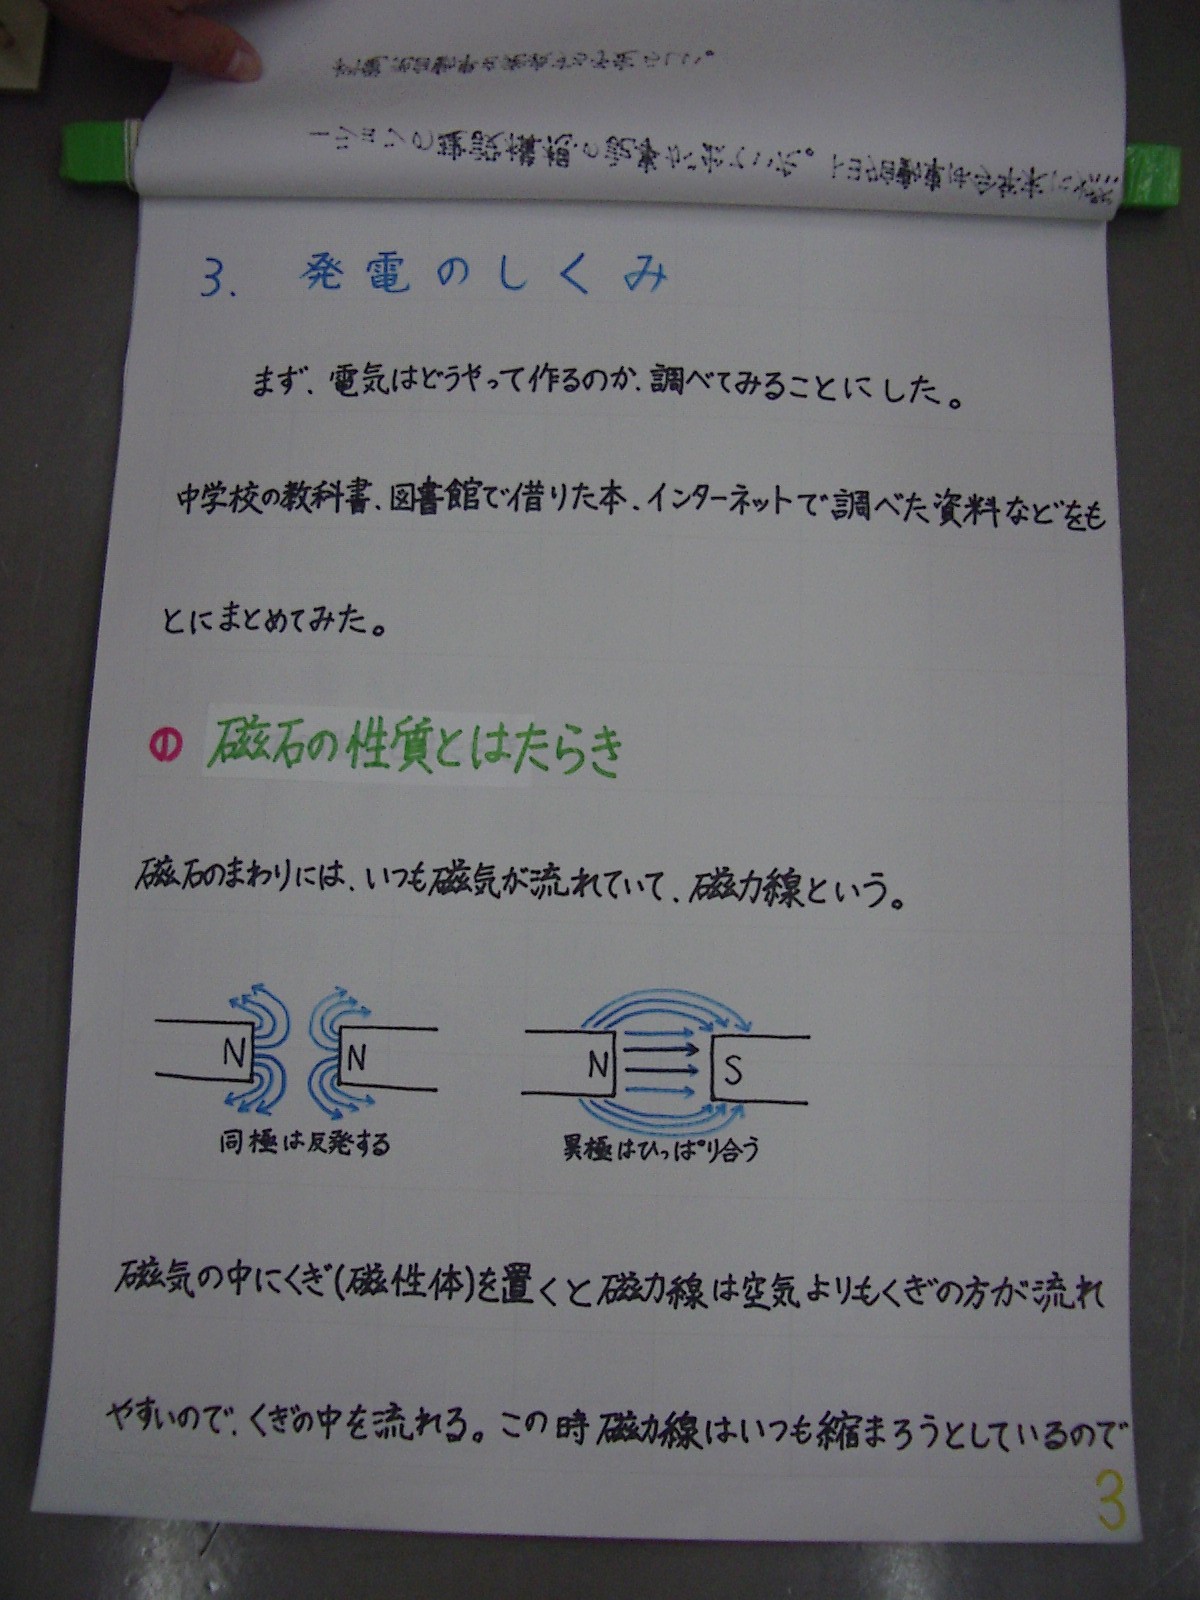 3. 発電のしくみ
まず、電気はどうやって作るのか、調べてみることにした。
中学校の教科書、図書館で借りた本、インターネットで調べた資料などをも
とにまとめてみた。
① 磁石の性質とはたらき
磁石のまわりには、いつも磁気が流れていて、磁力線という。
N N N S
同極は反発する 異極はひっぱり合う
磁気の中にくぎ(磁性体)を置くと磁力線は空気よりもくぎの方が流れ
やすいので、くぎの中を流れる。この時磁力線はいつも縮まろうとしているので
3